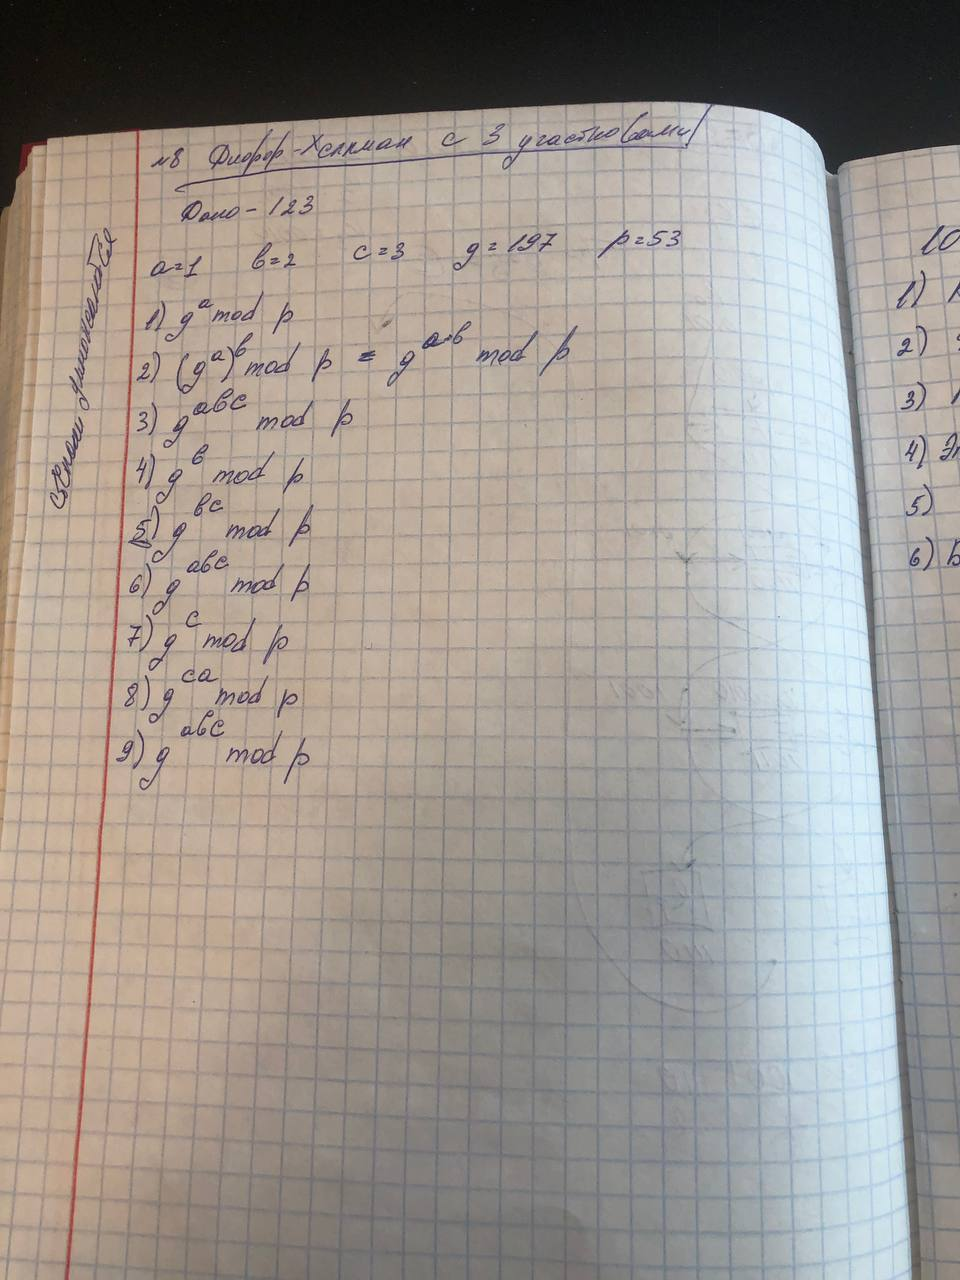 №8 Диффи-Хеллман с 3 участко(вами)
Дано - 123
a=1 b=2 c=3 g=197 p=53
1) g^a mod p
2) (g^a)^b mod p = g^a·b mod p
3) g^abc mod p
4) g^b mod p
5) g^bc mod p
6) g^abc mod p
7) g^c mod p
8) g^ca mod p
9) g^abc mod p
степени умножаются
10
1)
2)
3)
4) Эт
5)
6) Б